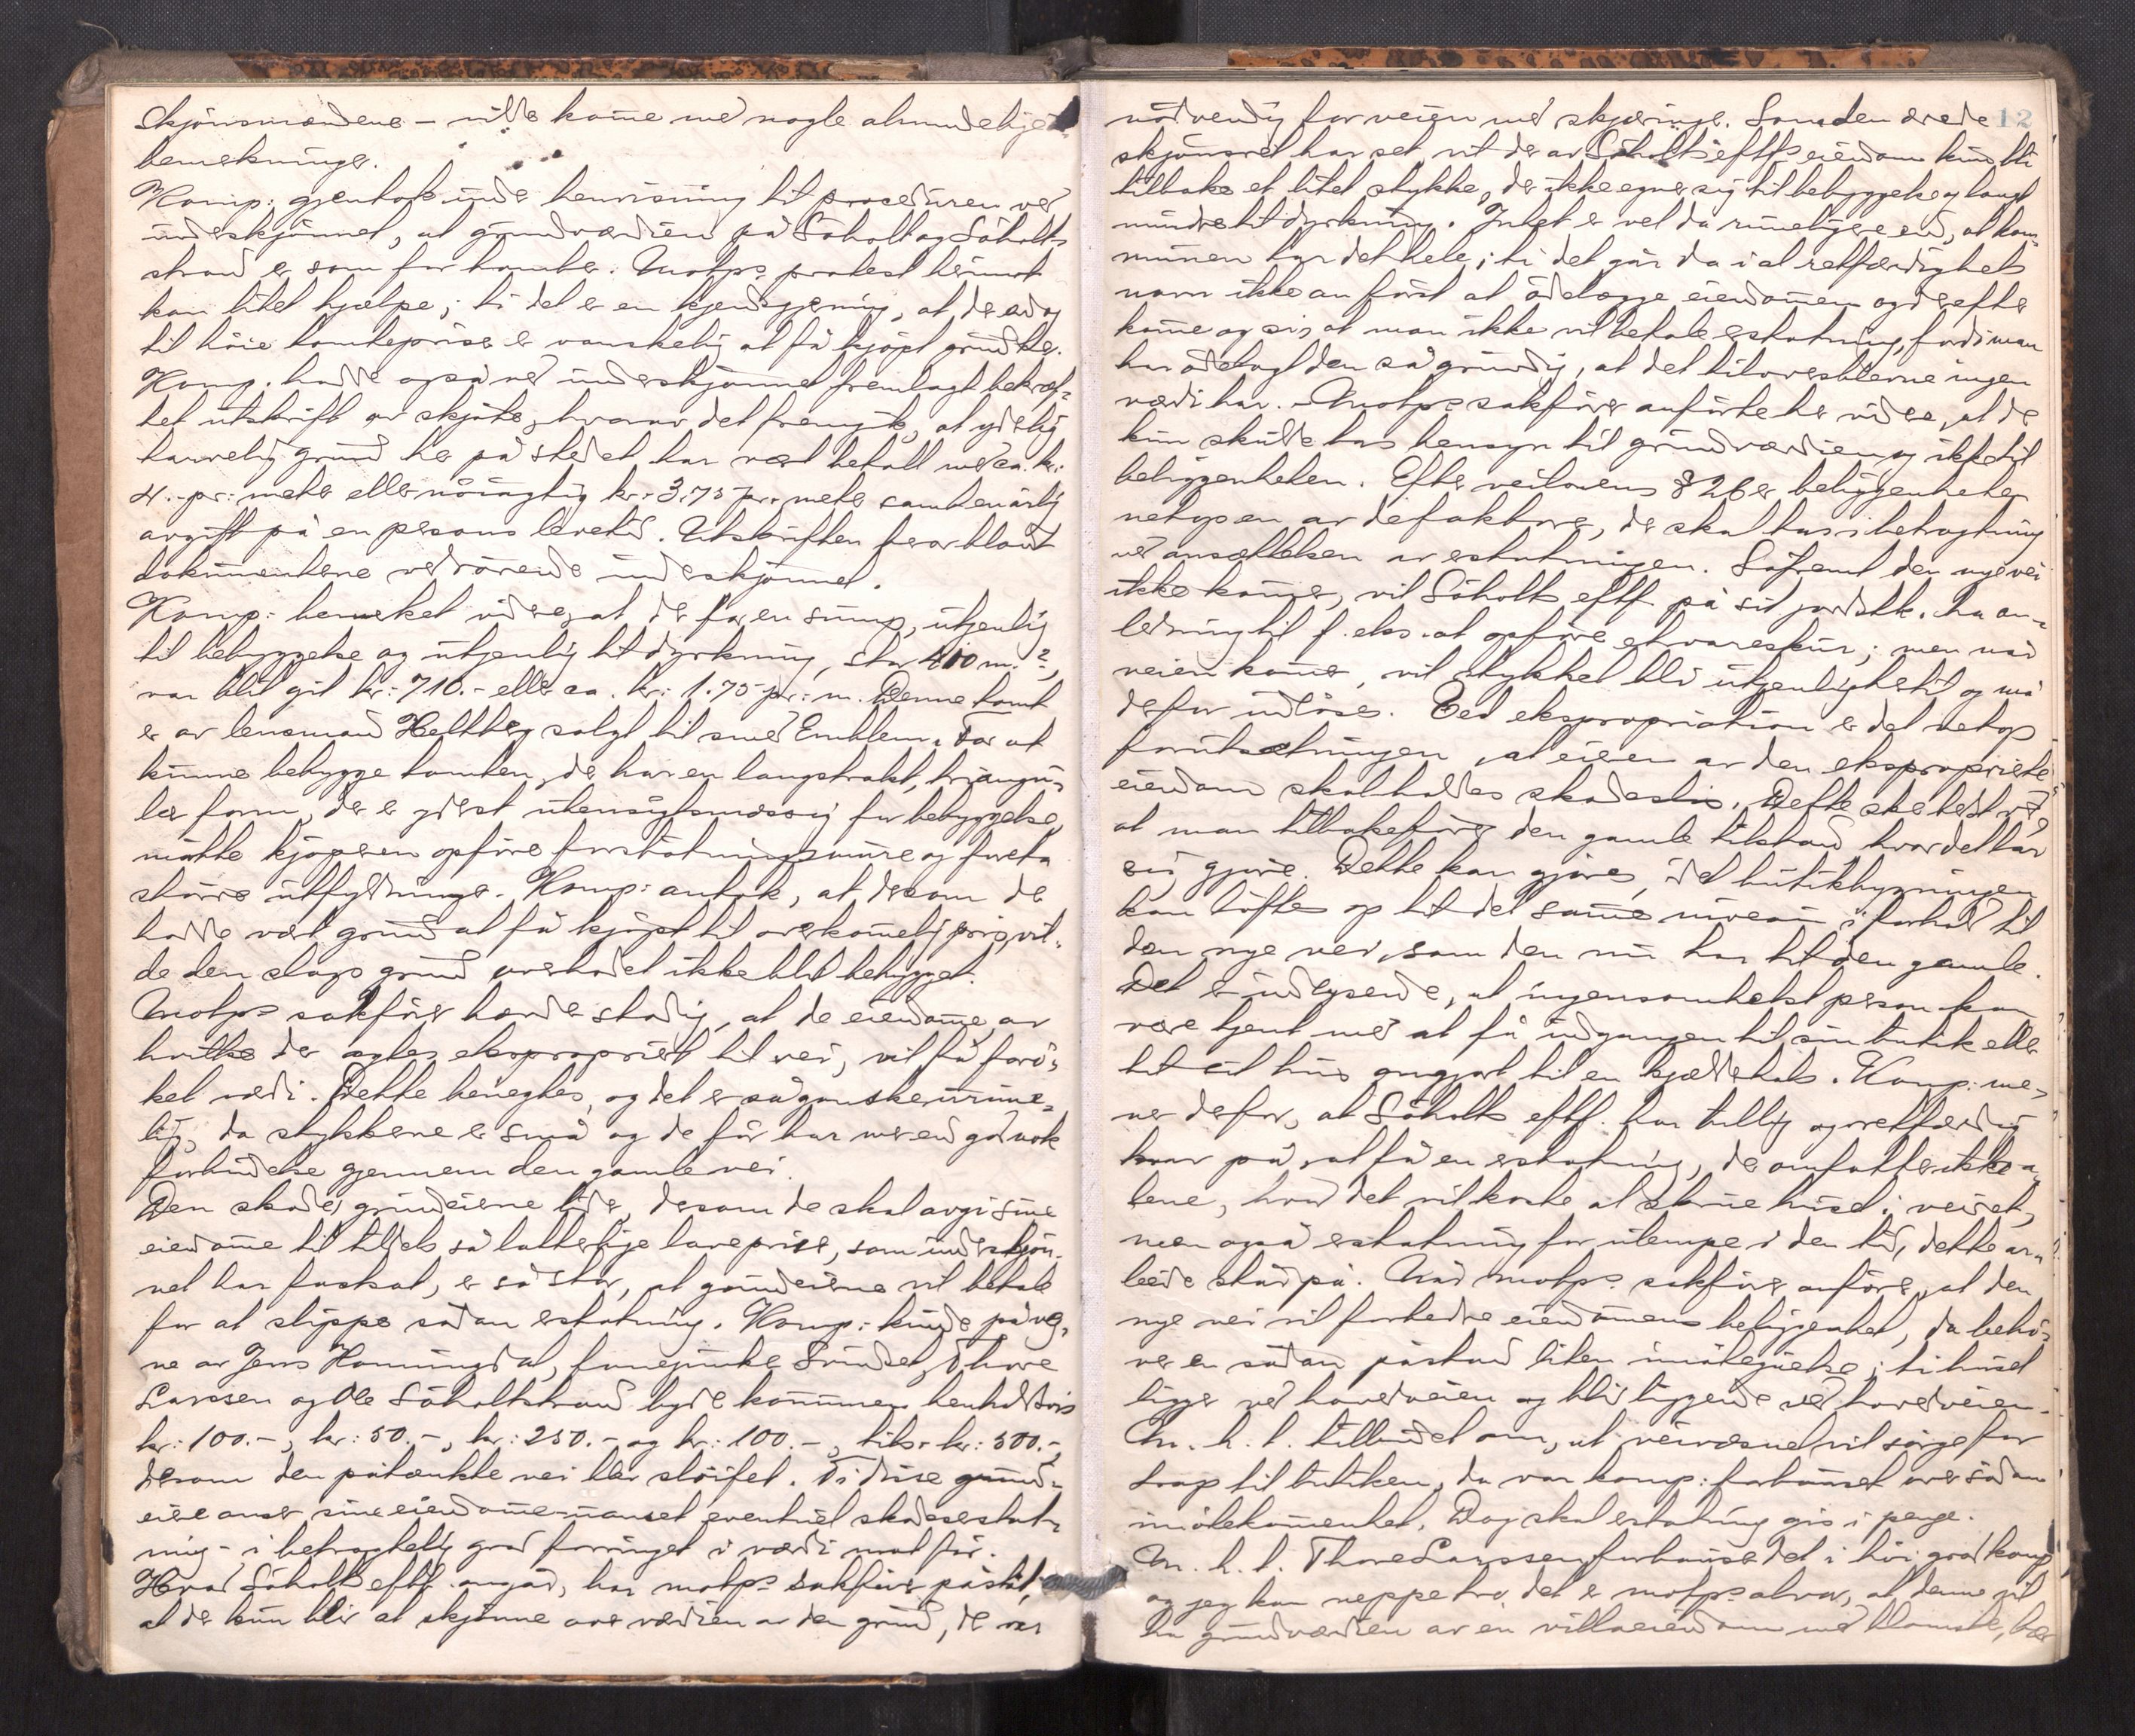 skjönsmændene – vilde komme med nogle almindelige
bemerkninger.
Komp: gjentok under henvisning til proceduren ved
underskjönnet, at grundværdien på Söholt og Söholt-
strand er som for tomter. Motp's protest herimot
kan litet hjælpe; ti det er en kjendsgjerning, at der endog
til höie tomtepriser er vanskelig at få kjöpt grund her.
Komp: hadde også ved underskjönnet fremlagt bekræf-
tet utskrift av skjöte, hvorav det fremgik, at yderlig
tarvelig grund her på stedet har været betalt med ca. kr.
4.- pr. meter eller nöiagtig kr. 3.75 pr. meter samt en årlig
avgift på en persons levetid. Utskriften beror blandt
dokumentene vedrörende underskjönnet.
Komp: bemerket videre, at der for en sump, utjenlig
til bebyggelse og utjenlig til dyrkning, stor 410 m.²,
var blit git kr: 710.- eller ca. kr: 1.75 pr: m. Denne tomt
er av lensmand Heltberg solgt til smed Emblem. For at
kunne bebygge tomten, der har en langstrakt, triangu-
lær form, der er yderst uhensigtsmæssig for bebyggelse,
måtte kjöperen opföre forstötningsmure og foreta
större utfyldninger. Komp: antok, at dersom der
hadde vært grund at få kjöpt til overkommelig pris, vil-
de den slags grund overhodet ikke blit bebygget.
Motp's sakförer hævder stadig, at de eiendomme, av
hvilke der agtes ekspropriert til vei, vil få forö-
ket værdi. Dette benegtes, og det er så ganske urime-
lig, da stykkerne er små og de för har mer end god nok
forbindelse gjennem den gamle vei.
Den skade, grundeierne lider, dersom de skal avgi sine
eiendomme til tildels så latterlige lave priser, som underskjön-
net har fastsat, er så stor, at grundeierne vil betale
for at slippe sådan erstatning. Komp: kunde på veg-
ne av Jens Honningdal, Sundset, Thore
Larssen og Ole Söholtstrand byde kommunen henholdsvis
kr: 100.-, kr: 50.-, kr: 250.- og kr: 100.-, tils. kr: 500.-,
dersom den påtænkte vei blir slöifet. Ti disse grund-
eiere anser sine eiendomme – uanset eventuel skadeserstat-
ning – i betragtelig grad forringet i værdi mot för.
Hvad Söholt eftf. angår, har motp's sakförer påståt,
at der kun blir at skjönne over værdien av den grund, der var
12
nödvendig for veien med skjæringer. Som den ærede
skjönsret har set, vil der av Söholt's eftf's eiendom kun bli
tilbake et litet stykke, der ikke egner sig til bebyggelse og langt
mindre til dyrkning. Intet er vel da rimeligere end, at kom-
munen tar det hele; ti det går da i al retfærdighets
navn ikke an först at ödelægge eiendommen og derefter
komme og si, at man ikke vil betale erstatning, fordi man
har ödelagt den så grundig, at det tiloversblevne ingen
værdi har. – Motp's sakförer anförte her videre, at der
kun skulde tas hensyn til grundværdien og ikke til
beliggenheten. Efter veilovens § 26 er beliggenheten
netop en av de faktorer, der skal tas i betragtning
ved ansættelsen av erstatningen. Såfremt den nye vei
ikke kommer, vil Söholts eftf. på sit jordstk. ha an-
ledning til f. eks. at opföre et vareskur; men når
veien kommer, vil stykket bli utjenlig hertil og må
derfor indlöses. Ved ekspropriation er det netop
forutsætningen, at eieren av den eksproprierte
eiendom skal holdes skadeslös. Dette sker bedst ved,
at man tilbakeförer den gamle tilstand hvor det lar
sig gjöre. Dette kan gjöres, idet butikbygningen
kan löftes op til det samme niveau i forhold til
den nye vei, som den nu har til den gamle.
Det er indlysende, at ingensomhelst person kan
være tjent med at få indgangen til sin butik eller
til sit hus omgjort til en kjælderhals. Komp: me-
ner derfor, at Söholts eftf. har billig og retfærdig
krav på at få en erstatning, der omfatter ikke a-
lene, hvad det vil koste at skrue huset i veiret,
men også erstatning for ulempe i den tid, dette ar-
beide står på. Når motp's sakförer anförer, at den
nye vei vil forbedre eiendommens beliggenhet, da behö-
ver en sådan påstand liten imötegåelse; ti huset
ligger ved hovedveien og blir liggende ved hovedveien.
M. h. t. tilbudet om, at veivæsenet vil sörge for
trap til butiken, da var komp: forbauset over sådan
imötekommenhet. Dog skal erstatning gis i penge.
M. h. t. Thore Larssen forbauser det i höi grad komp:
og jeg kan neppe tro, det er motp's alvor, at denne vil
ha grundværdien av en villaeiendom med blomster, bær